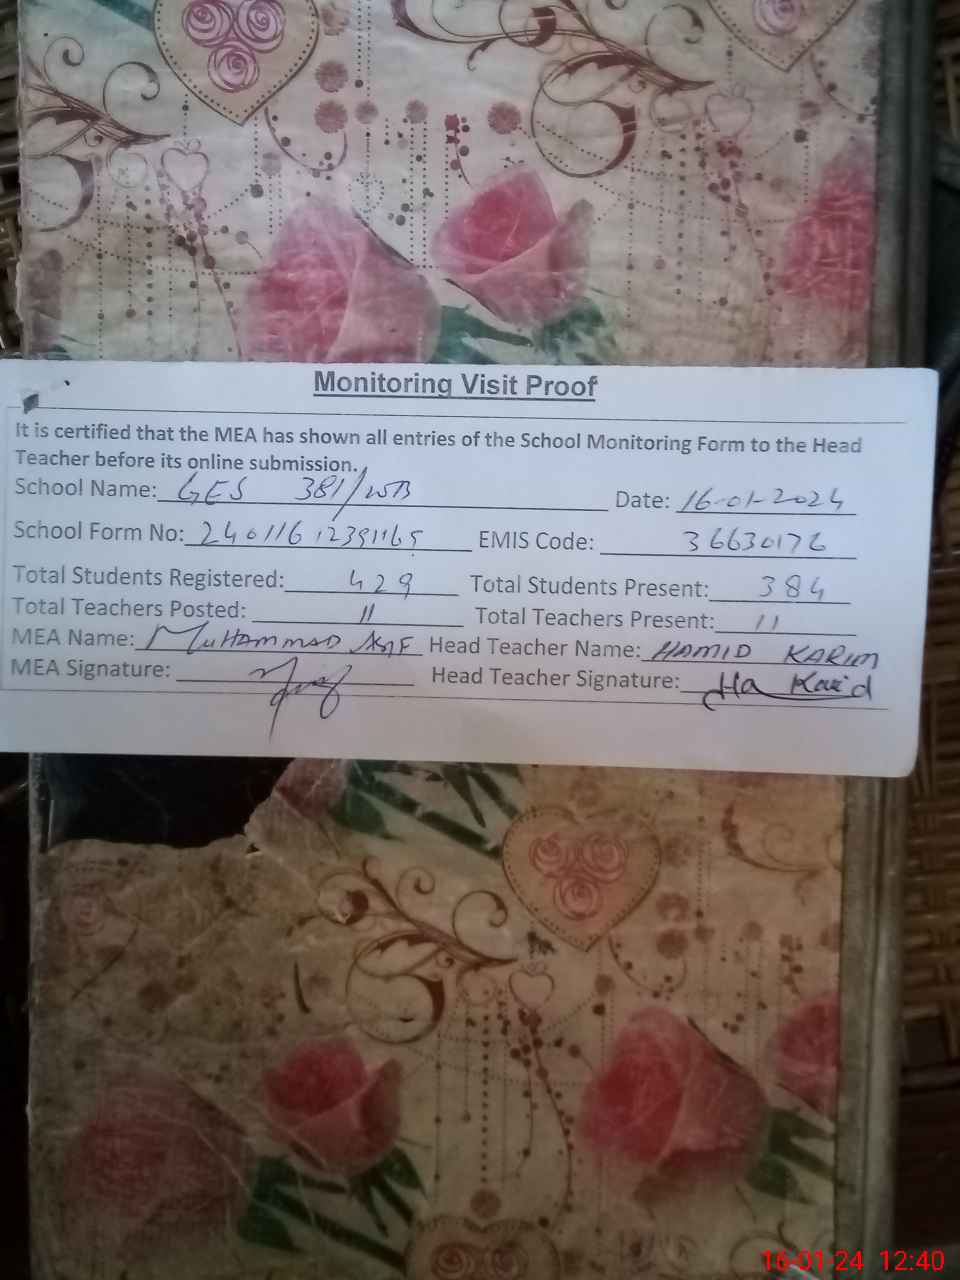 Monitoring Visit Proof
It is certified that the MEA has shown all entries of the School Monitoring Form to the Head
Teacher before its online submission.
School Name: GES 381/WB Date: 16-01-2024
School Form No: 240116 12391165 EMIS Code: 36630176
Total Students Registered: 429 Total Students Present: 384
Total Teachers Posted: 11 Total Teachers Present: 11
MEA Name: MUHAMMAD ASIF Head Teacher Name: HAMID KARIM
MEA Signature: Head Teacher Signature:
16-01-24 12:40